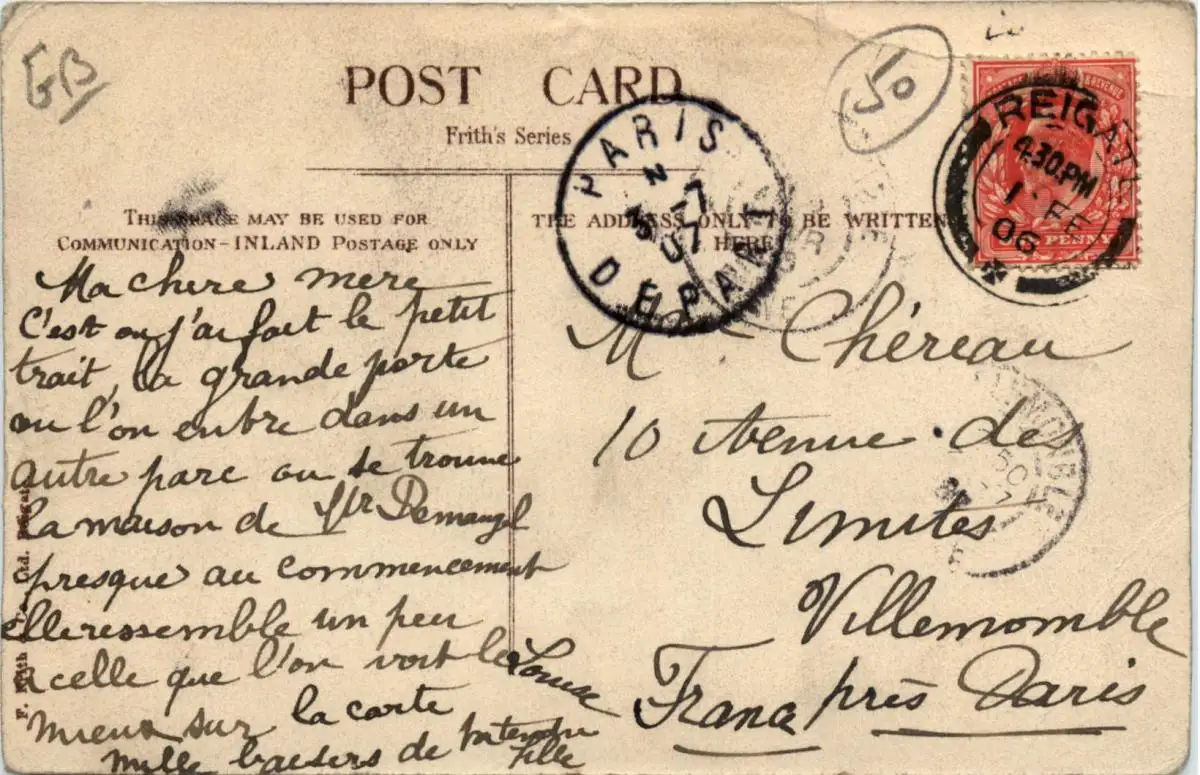 GB
POST CARD
Frith's Series
50
REIGATE
4.30.PM
1 FE
06
PENNY
PARIS
DEPART
THIS SPACE MAY BE USED FOR
COMMUNICATION-INLAND POSTAGE ONLY
THE ADDRESS ONLY TO BE WRITTEN
HERE
Ma chere mere
C'est ou j'ai fait le petit
trait, la grande porte
ou l'on entre dans un
autre parc ou se trouve
la maison de Demangel
presque au commencement
elle ressemble un peu
a celle que l'on voit le
mieux sur la carte
Mille baisers de
fille
Louise
Chéreau
10 Avenue des
Limites
Villemomble
près Paris
France
F. Frith & Co. Ltd. Reigate